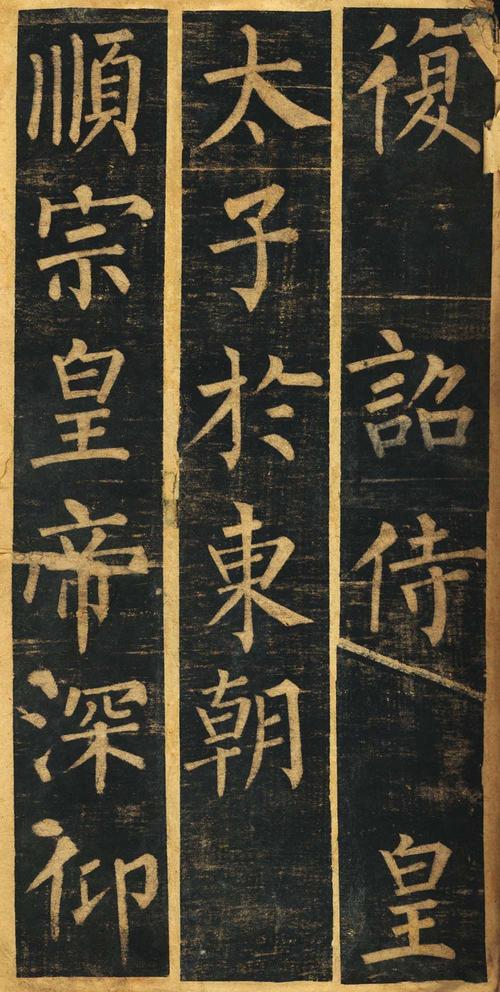 復 詔侍 皇
太子於東朝
順宗皇帝深仰